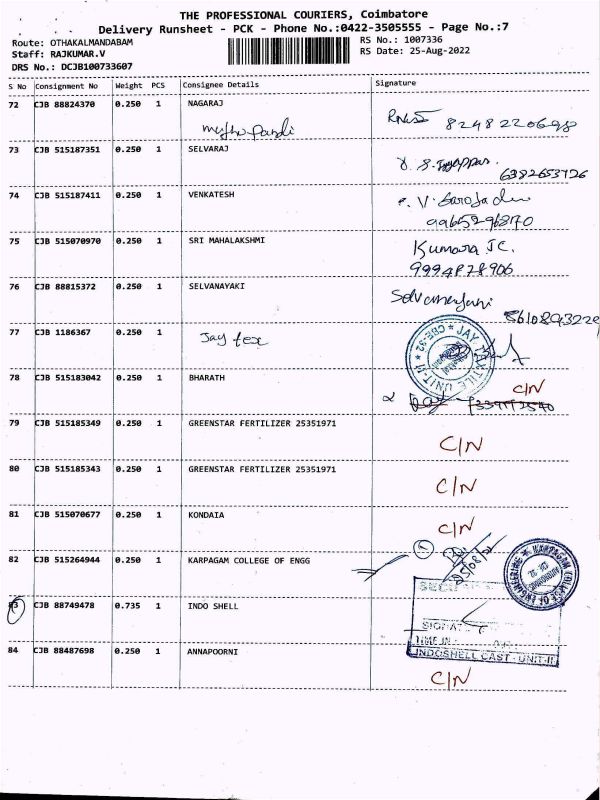 THE PROFESSIONAL COURIERS, Coimbatore
Delivery Runsheet - PCK - Phone No.:0422-3505555 - Page No.:7
Route: OTHAKALMANDABAM RS No.: 1007336
Staff: RAJKUMAR.V RS Date: 25-Aug-2022
DRS No.: DCJB100733607
S No Consignment No Weight PCS Consignee Details Signature
72 CJB 88824370 0.250 1 NAGARAJ
8248220698
73 CJB 515187351 0.250 1 SELVARAJ
6382653726
74 CJB 515187411 0.250 1 VENKATESH
9965296870
75 CJB 515070970 0.250 1 SRI MAHALAKSHMI Kumara
9994828906
76 CJB 88815372 0.250 1 SELVANAYAKI
77 CJB 1186367 0.250 1 Jay tex
JAY TEXTILE UNIT-II CBE-32
78 CJB 515183042 0.250 1 BHARATH C/N
79 CJB 515185349 0.250 1 GREENSTAR FERTILIZER 25351971 C/N
80 CJB 515185343 0.250 1 GREENSTAR FERTILIZER 25351971 C/N
81 CJB 515070677 0.250 1 KONDAIA C/N
82 CJB 515264944 0.250 1 KARPAGAM COLLEGE OF ENGG
KARPAGAM COLLEGE OF ENGINEERING
83 CJB 88749478 0.735 1 INDO SHELL
TIME IN
INDOSHELL CAST - UNIT-II
84 CJB 88487698 0.250 1 ANNAPOORNI C/N